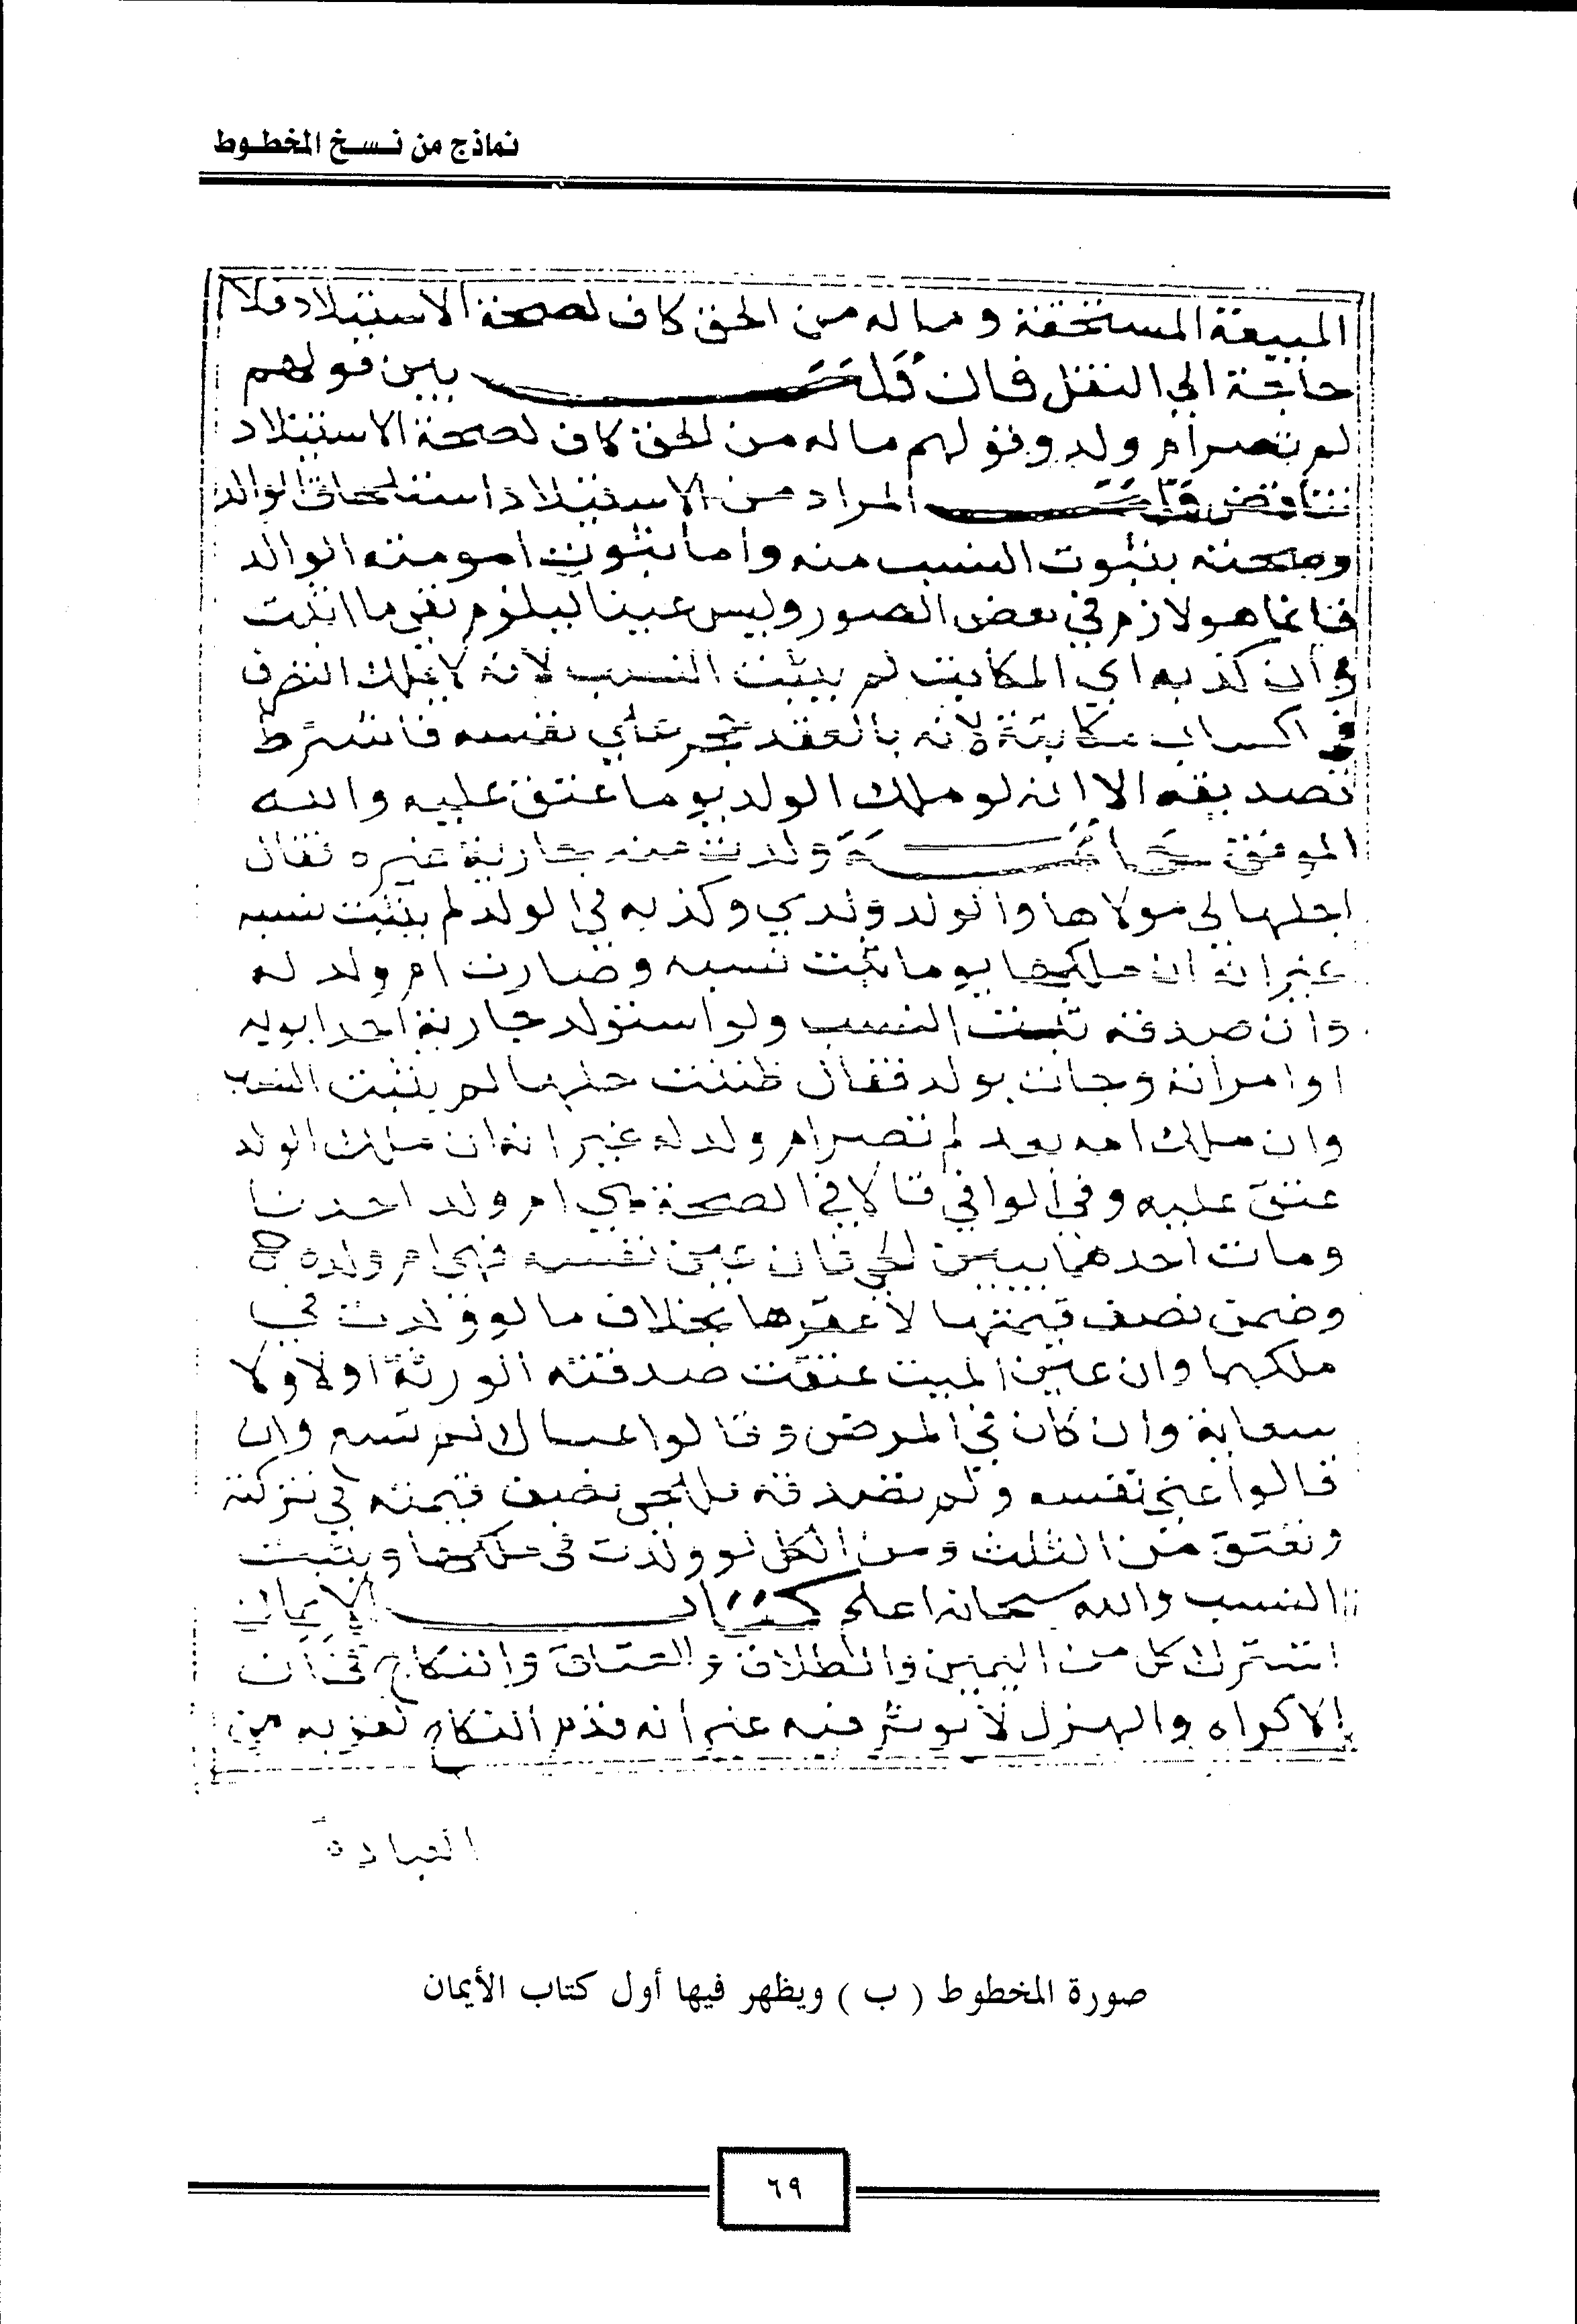 نماذج من نسخ المخطوط
المبيعة المستحقة وماله من الحق كاف لصحة الاستيلاد فلا
حاجة الي النقل فان قلت بين قولهم
لم تصر ام ولد وقولهم ماله من الحق كاف لصحة الاستيلاد
تناقض قلت المراد من الاستيلاد استلحاق الوالد
وصحته بثبوت النسب منه واما ثبوت امومته الوالد
فانما هو لازم في بعض الصور وليس عينا ليلزم نفي ما اثبت
وان كذبه اي المكاتب لم يثبت النسب لانه لا يملك التصرف
في اكساب مكاتبه لانه بالعقد حجر علي نفسه فاشترط
تصديقه الا انه لو ملك الولد يوما عتق عليه والله
الموفق خاتمة ولدت منه جارية غيره فقال
احلها لي مولاها والولد ولدي وكذبه في الولد لم يثبت نسبه
غير انه ان ملكها يوما ثبت نسبه وصارت ام ولد له
وان صدقه ثبت النسب ولو استولد جارية احد ابويه
او امراته وجات بولد فقال ظننت حلها لم يثبت النسب
وان ملك امه بعد لم تصر ام ولد له غير انه ان ملك الولد
عتق عليه وفي الوافي قالا في الصحة هي ام ولد احدنا
ومات احدهما بيين الحي فان عين نفسه فهي ام ولده
وضمن نصف قيمتها لا عقرها بخلاف ما لو ولدت في
ملكهما وان عين الميت عتقت صدقته الورثة اولا ولا
سعاية وان كان في المرض وقالوا لم
قالوا عني نفسه ولم تصدقه فللحي نصف قيمته في تركته
وتعتق من الثلث ومن الكل لو ولدت في ملكهما ويثبت
النسب والله سبحانه اعلم كتاب الايمان
اشترك كل من اليمين والطلاق والعتاق والنكاح في ان
الاكراه والهزل لا يوثر فيه غير انه قدم النكاح لقربه من
العبادة
صورة المخطوط ( ب ) ويظهر فيها أول كتاب الأيمان
٦٩